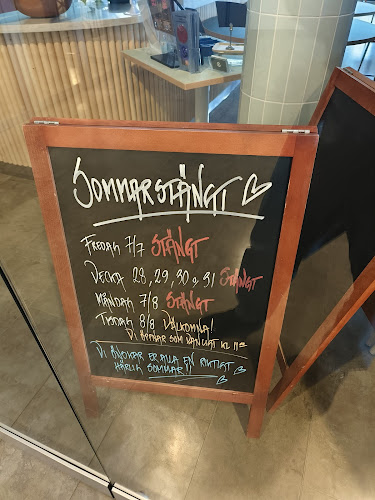 SOMMARSTÄNGT
FREDAG 7/7 STÄNGT
VECKA 28, 29, 30 & 31 STÄNGT
MÅNDAG 7/8 STÄNGT
TISDAG 8/8 VÄLKOMNA!
VI ÖPPNAR SOM VANLIGT KL 11⁰⁰
VI ÖNSKAR ER ALLA EN RIKTIGT
HÄRLIG SOMMAR!!